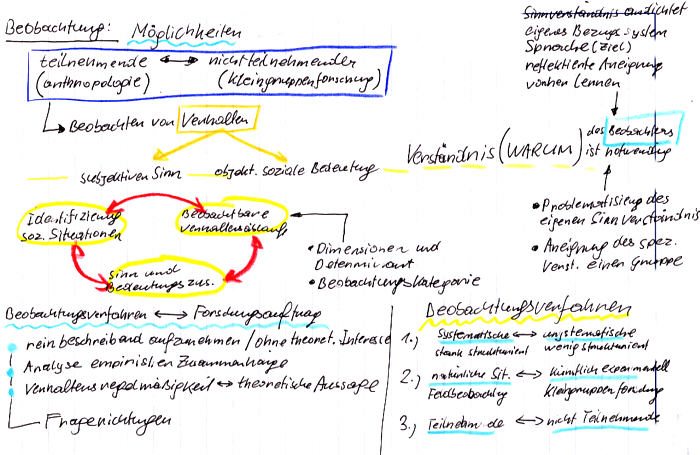 Beobachtung: Möglichkeiten
teilnehmende ↔ nicht teilnehmender
(anthropologie) (Kleingruppenforschung)
Beobachten von Verhalten
subjektiven Sinn objekt. soziale Bedeutung
Verständnis (WARUM) des Beobachters
ist notwendig
Sinnverständnis
eigenes Bezugssystem
Sprache (Ziel)
reflektierte Aneignung
vorher lernen
• Problematisierung des
eigenen Sinnverständnis
• Aneignung des spez.
Verst. einen Gruppe
Identifizierung
soz. Situationen
Beobachtbare
Verhaltensabläufe
Sinn und
Bedeutungszus.
• Dimensionen und
Determinant
• Beobachtungskategorie
Beobachtungsverfahren ↔ Forschungsauftrag
• rein beschreibend aufzunehmen / ohne theoret. Interesse
• Analyse empirischen Zusammenhänge
• Verhaltensregelmäßigkeit ↔ theoretische Aussage
Fragerichtungen
Beobachtungsverfahren
1.) Systematische ↔ unsystematische
stark strukturiert wenig strukturiert
2.) natürliche Sit. ↔ künstlich experimentell
Feldbeobachtung Kleingruppenforschung
3.) Teilnehmende ↔ nicht Teilnehmende